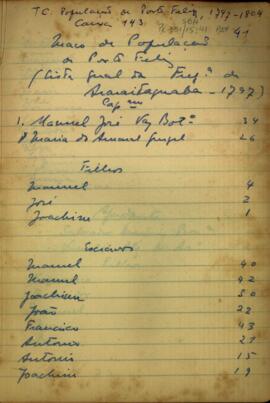 TC. População de Porto Feliz 1797-1804
Caixa 143
91
Maço de População
de Porto Feliz
(Lista Geral da Freg.ª de
Araraitaguaba - 1797)
1. Manuel José Vaz Bot.º 34
Maria do Amaral Gurgel 26
Filhos
Manuel 4
José 2
Joachim 1
Escravos
Manuel 40
Manuel 42
Joachim 50
João 22
Francisco 43
Antonio 27
Antonio 15
Joachim 19